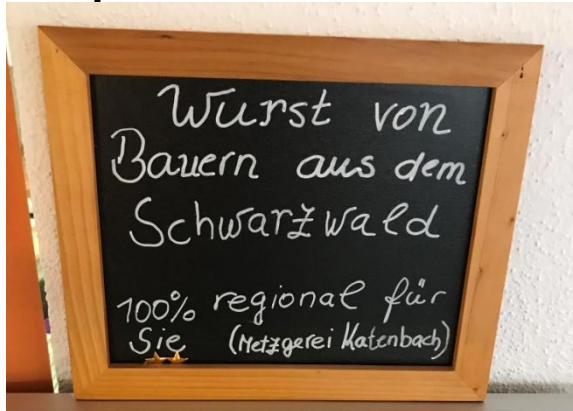 Wurst von
Bauern aus dem
Schwarzwald
100% regional für
Sie (Metzgerei Katzenbach)